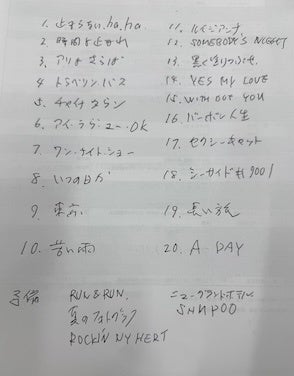 1. 止まらない ha, ha
2. 時間よ止まれ
3. アリよさらば
4. トラベリンバス
5. チャイナタウン
6. アイ・ラヴ・ユー・OK
7. ワン・ナイト・ショー
8. いつの日か
9. 東京
10. 苦い雨
11. ルイジアンナ
12. SOMEBODY'S NIGHT
13. 黒く塗りつぶせ
14. YES MY LOVE
15. WITH OUT YOU
16. バーボン人生
17. セクシーキャット
18. シーサイド
19. 長い旅
20. A-DAY
予備
RUN & RUN.
夏のフォトグラフ
ROCK'IN MY HERT
ニューグランドホテル
SHAPOO